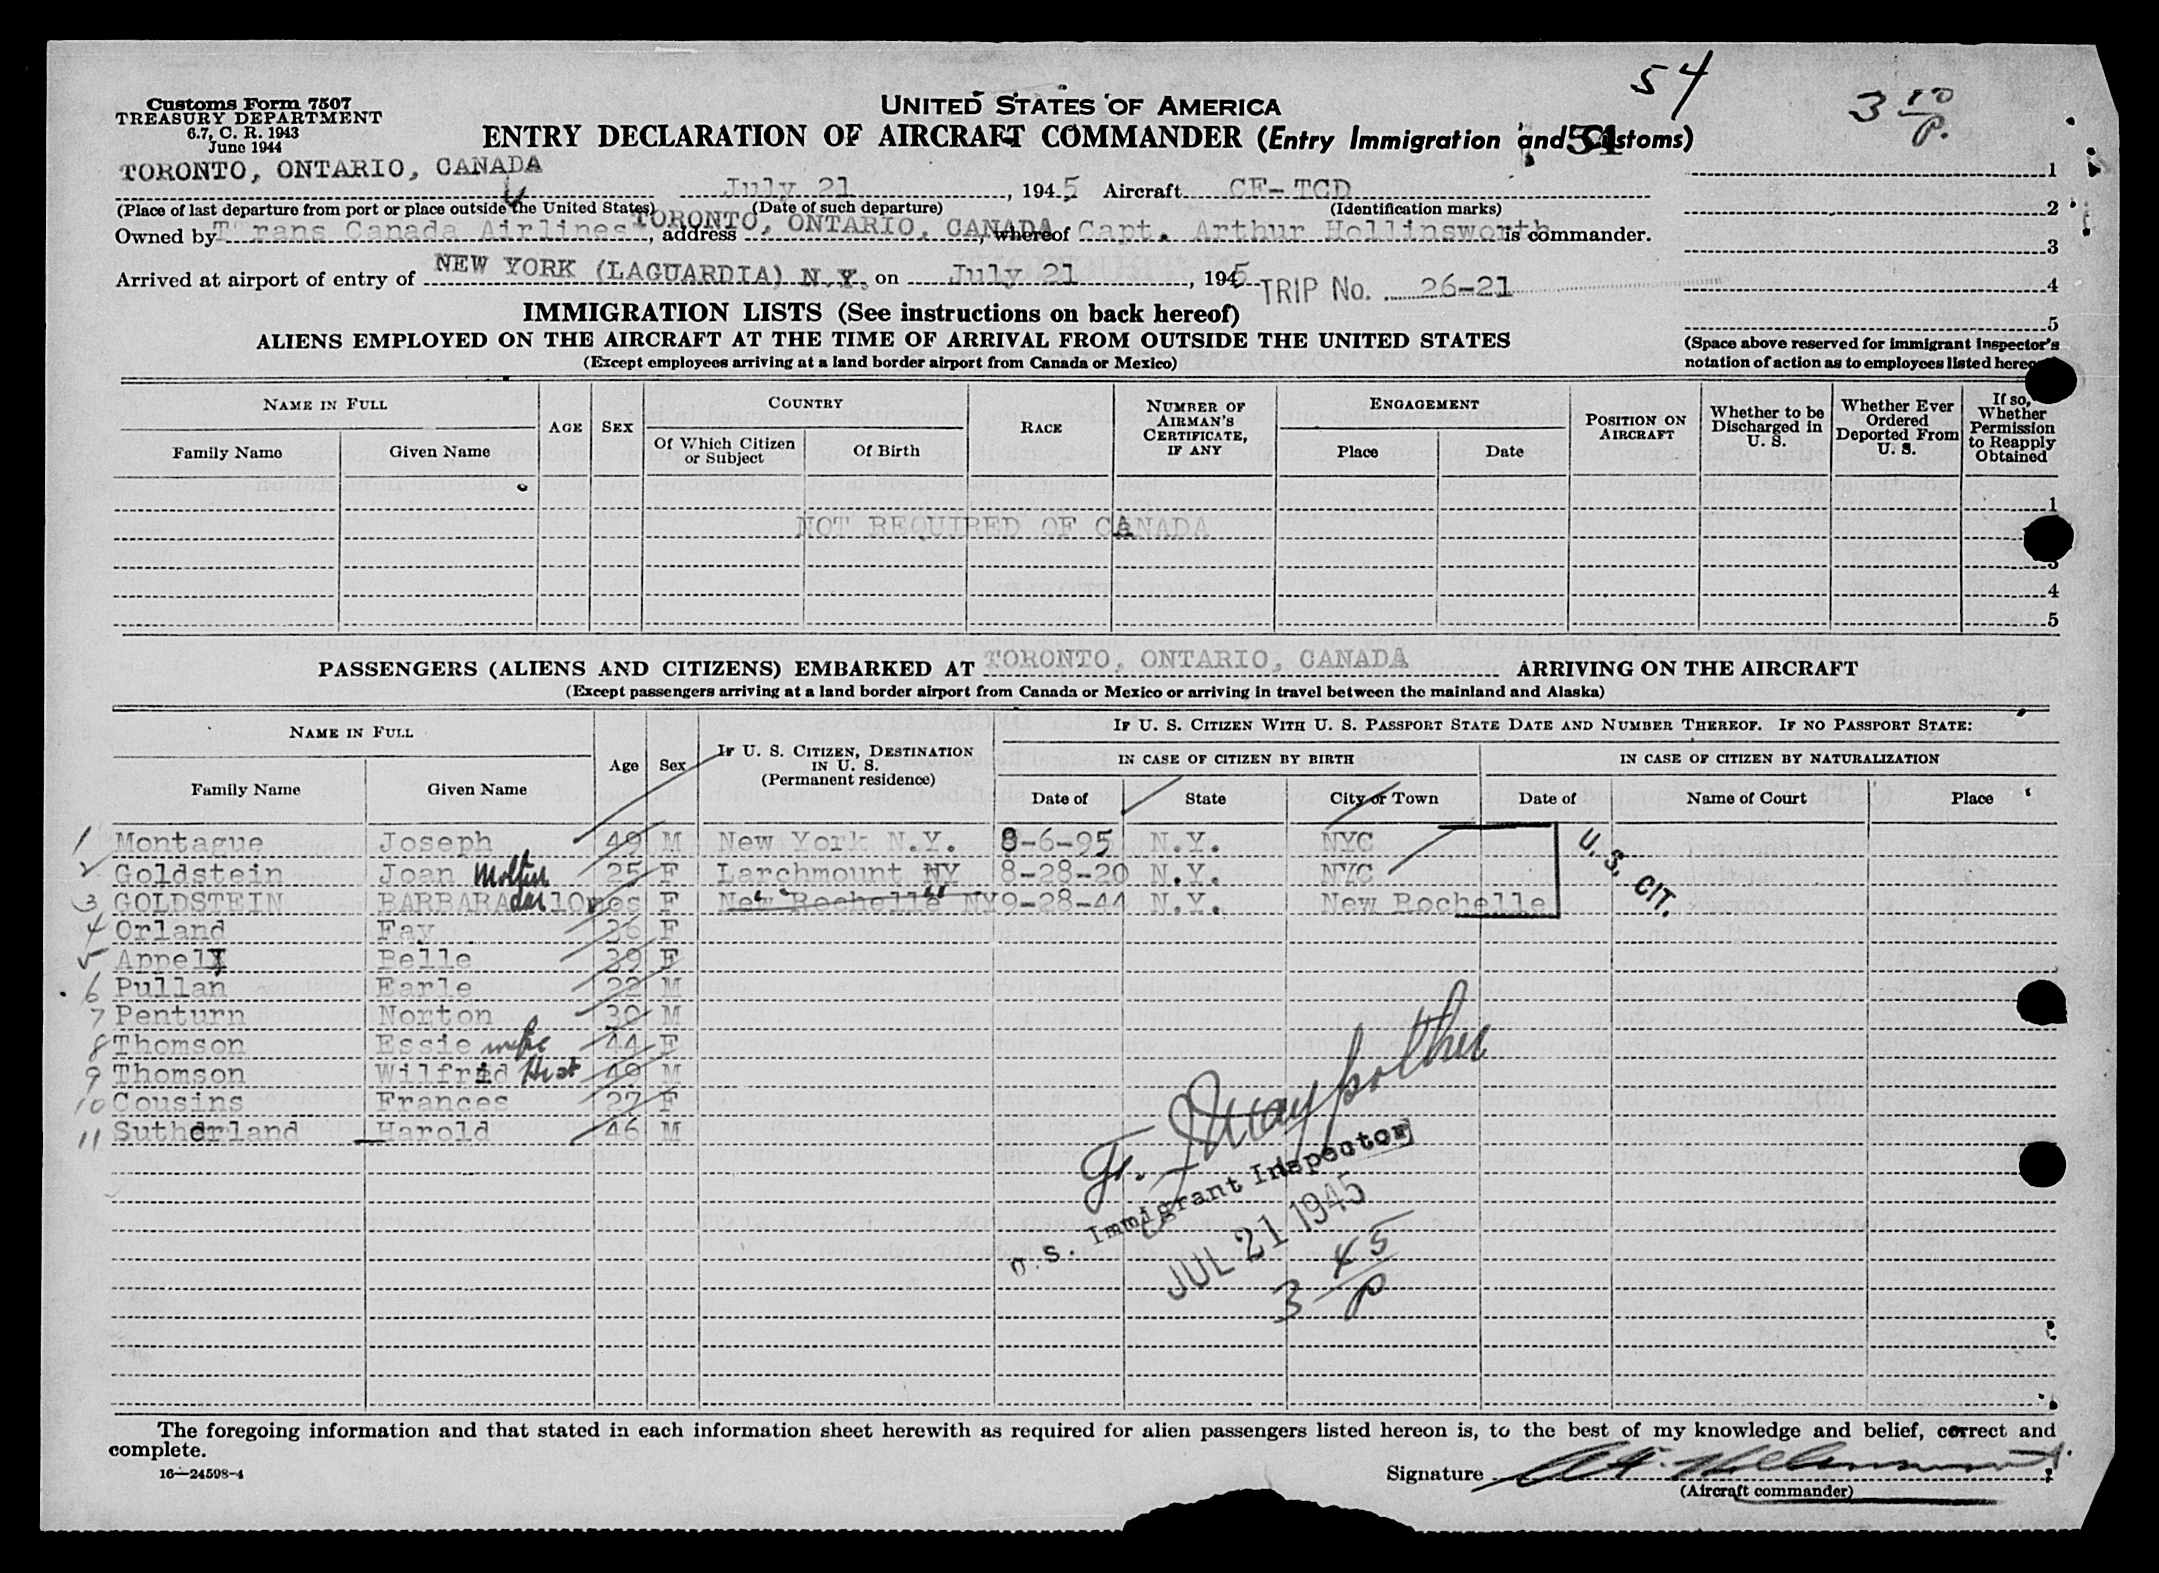 54
3 10/P.
Customs Form 7507
TREASURY DEPARTMENT
6.7, C. R. 1943
June 1944
UNITED STATES OF AMERICA
ENTRY DECLARATION OF AIRCRAFT COMMANDER (Entry Immigration and Customs)
54
TORONTO, ONTARIO, CANADA July 21, 1945 Aircraft CF-TCD
(Place of last departure from port or place outside the United States) (Date of such departure) (Identification marks)
Owned by Trans Canada Airlines, address TORONTO, ONTARIO, CANADA, whereof Capt. Arthur Hollinsworth is commander.
Arrived at airport of entry of NEW YORK (LAGUARDIA) N.Y. on July 21, 1945 TRIP No. 26-21
1
2
3
4
5
(Space above reserved for immigrant inspector's
notation of action as to employees listed hereon
IMMIGRATION LISTS (See instructions on back hereof)
ALIENS EMPLOYED ON THE AIRCRAFT AT THE TIME OF ARRIVAL FROM OUTSIDE THE UNITED STATES
(Except employees arriving at a land border airport from Canada or Mexico)
NAME IN FULL
Family Name Given Name
AGE SEX
COUNTRY
Of Which Citizen or Subject Of Birth
RACE
NUMBER OF AIRMAN'S CERTIFICATE, IF ANY
ENGAGEMENT
Place Date
POSITION ON AIRCRAFT
Whether to be Discharged in U. S.
Whether Ever Ordered Deported From U. S.
If so, Whether Permission to Reapply Obtained
1
NOT REQUIRED OF CANADA
3
4
5
PASSENGERS (ALIENS AND CITIZENS) EMBARKED AT TORONTO, ONTARIO, CANADA ARRIVING ON THE AIRCRAFT
(Except passengers arriving at a land border airport from Canada or Mexico or arriving in travel between the mainland and Alaska)
NAME IN FULL
Family Name Given Name
Age Sex
IF U. S. CITIZEN, DESTINATION IN U. S. (Permanent residence)
IF U. S. CITIZEN WITH U. S. PASSPORT STATE DATE AND NUMBER THEREOF. IF NO PASSPORT STATE:
IN CASE OF CITIZEN BY BIRTH IN CASE OF CITIZEN BY NATURALIZATION
Date of State City or Town Date of Name of Court Place
1 Montague Joseph 49 M New York N.Y. 8-6-95 N.Y. NYC
2 Goldstein Joan Mother 25 F Larchmount NY 8-28-20 N.Y. NYC
3 GOLDSTEIN BARBARA dau 10mos F New Rochelle NY 9-28-44 N.Y. New Rochelle
U. S. CIT.
4 Orland Fay 36 F
5 Appel Belle 39 F
6 Pullan Earle 22 M
7 Penturn Norton 30 M
8 Thomson Essie wife 44 F
9 Thomson Wilfrid 49 M
10 Cousins Frances 27 F
11 Sutherland Harold 46 M
U. S. Immigrant Inspector
JUL 21 1945
3 45/P
The foregoing information and that stated in each information sheet herewith as required for alien passengers listed hereon is, to the best of my knowledge and belief, correct and
complete.
16—24598-4
Signature
(Aircraft commander)